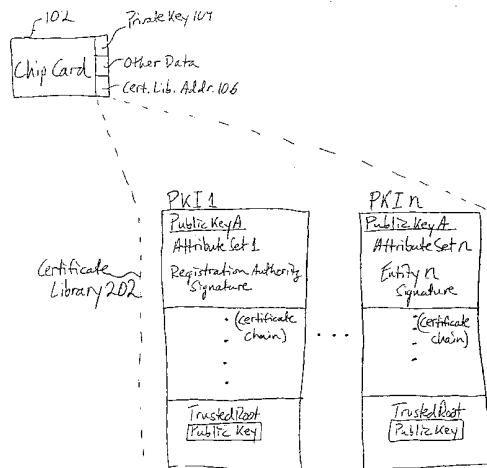 102
Private Key 104
Chip Card
Other Data
Cert. Lib. Addr. 106
PKI 1
Public Key A
Attribute Set 1
Registration Authority
Signature
(certificate
chain)
Trusted Root
Public Key
. . .
PKI n
Public Key A
Attribute Set n
Entity n
Signature
(certificate
chain)
Trusted Root
Public Key
Certificate
Library 202